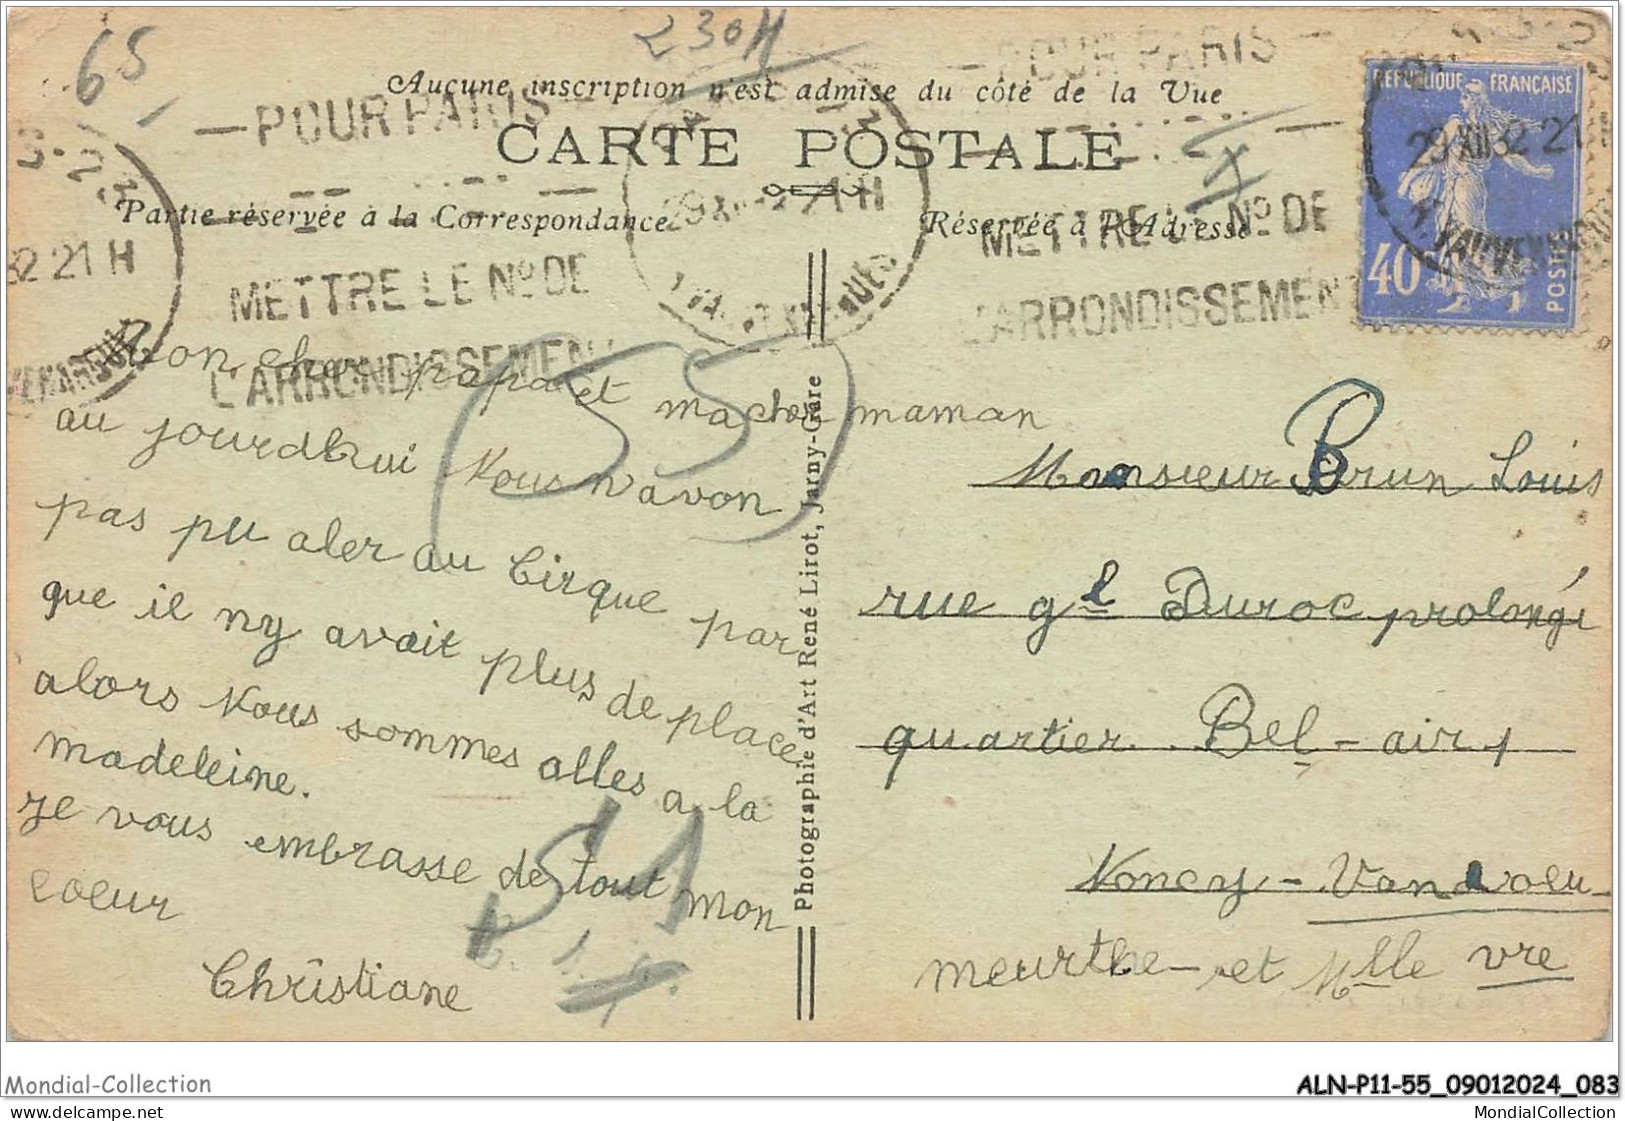 65
230H
Aucune inscription n'est admise du côté de la Vue
CARTE POSTALE
Partie réservée à la Correspondance
Réservée à l'Adresse
POUR PARIS
METTRE LE No DE
L'ARRONDISSEMENT
POUR PARIS
METTRE LE No DE
L'ARRONDISSEMENT
32 21 H
29 XII 32 21
REPUBLIQUE FRANÇAISE
40
POSTES
55
Mon cher papa et ma cher maman
au jourdhui Nous n'avon
pas pu aler au Cirque par
que il ny avait plus de place
alors Nous sommes alles a la
madeleine.
Je vous embrasse de tout mon
coeur
Christiane
51
Photographie d'Art René Lirot, Jarny-Gare
Monsieur Brun Louis
rue gl Duroc prolongé
quartier Bel-air,
Noncy - Vandvoeu
meurthe-et Mlle vre
Mondial-Collection
Do not remove this copyright notice
ALN-P11-55_09012024_083
MondialCollection